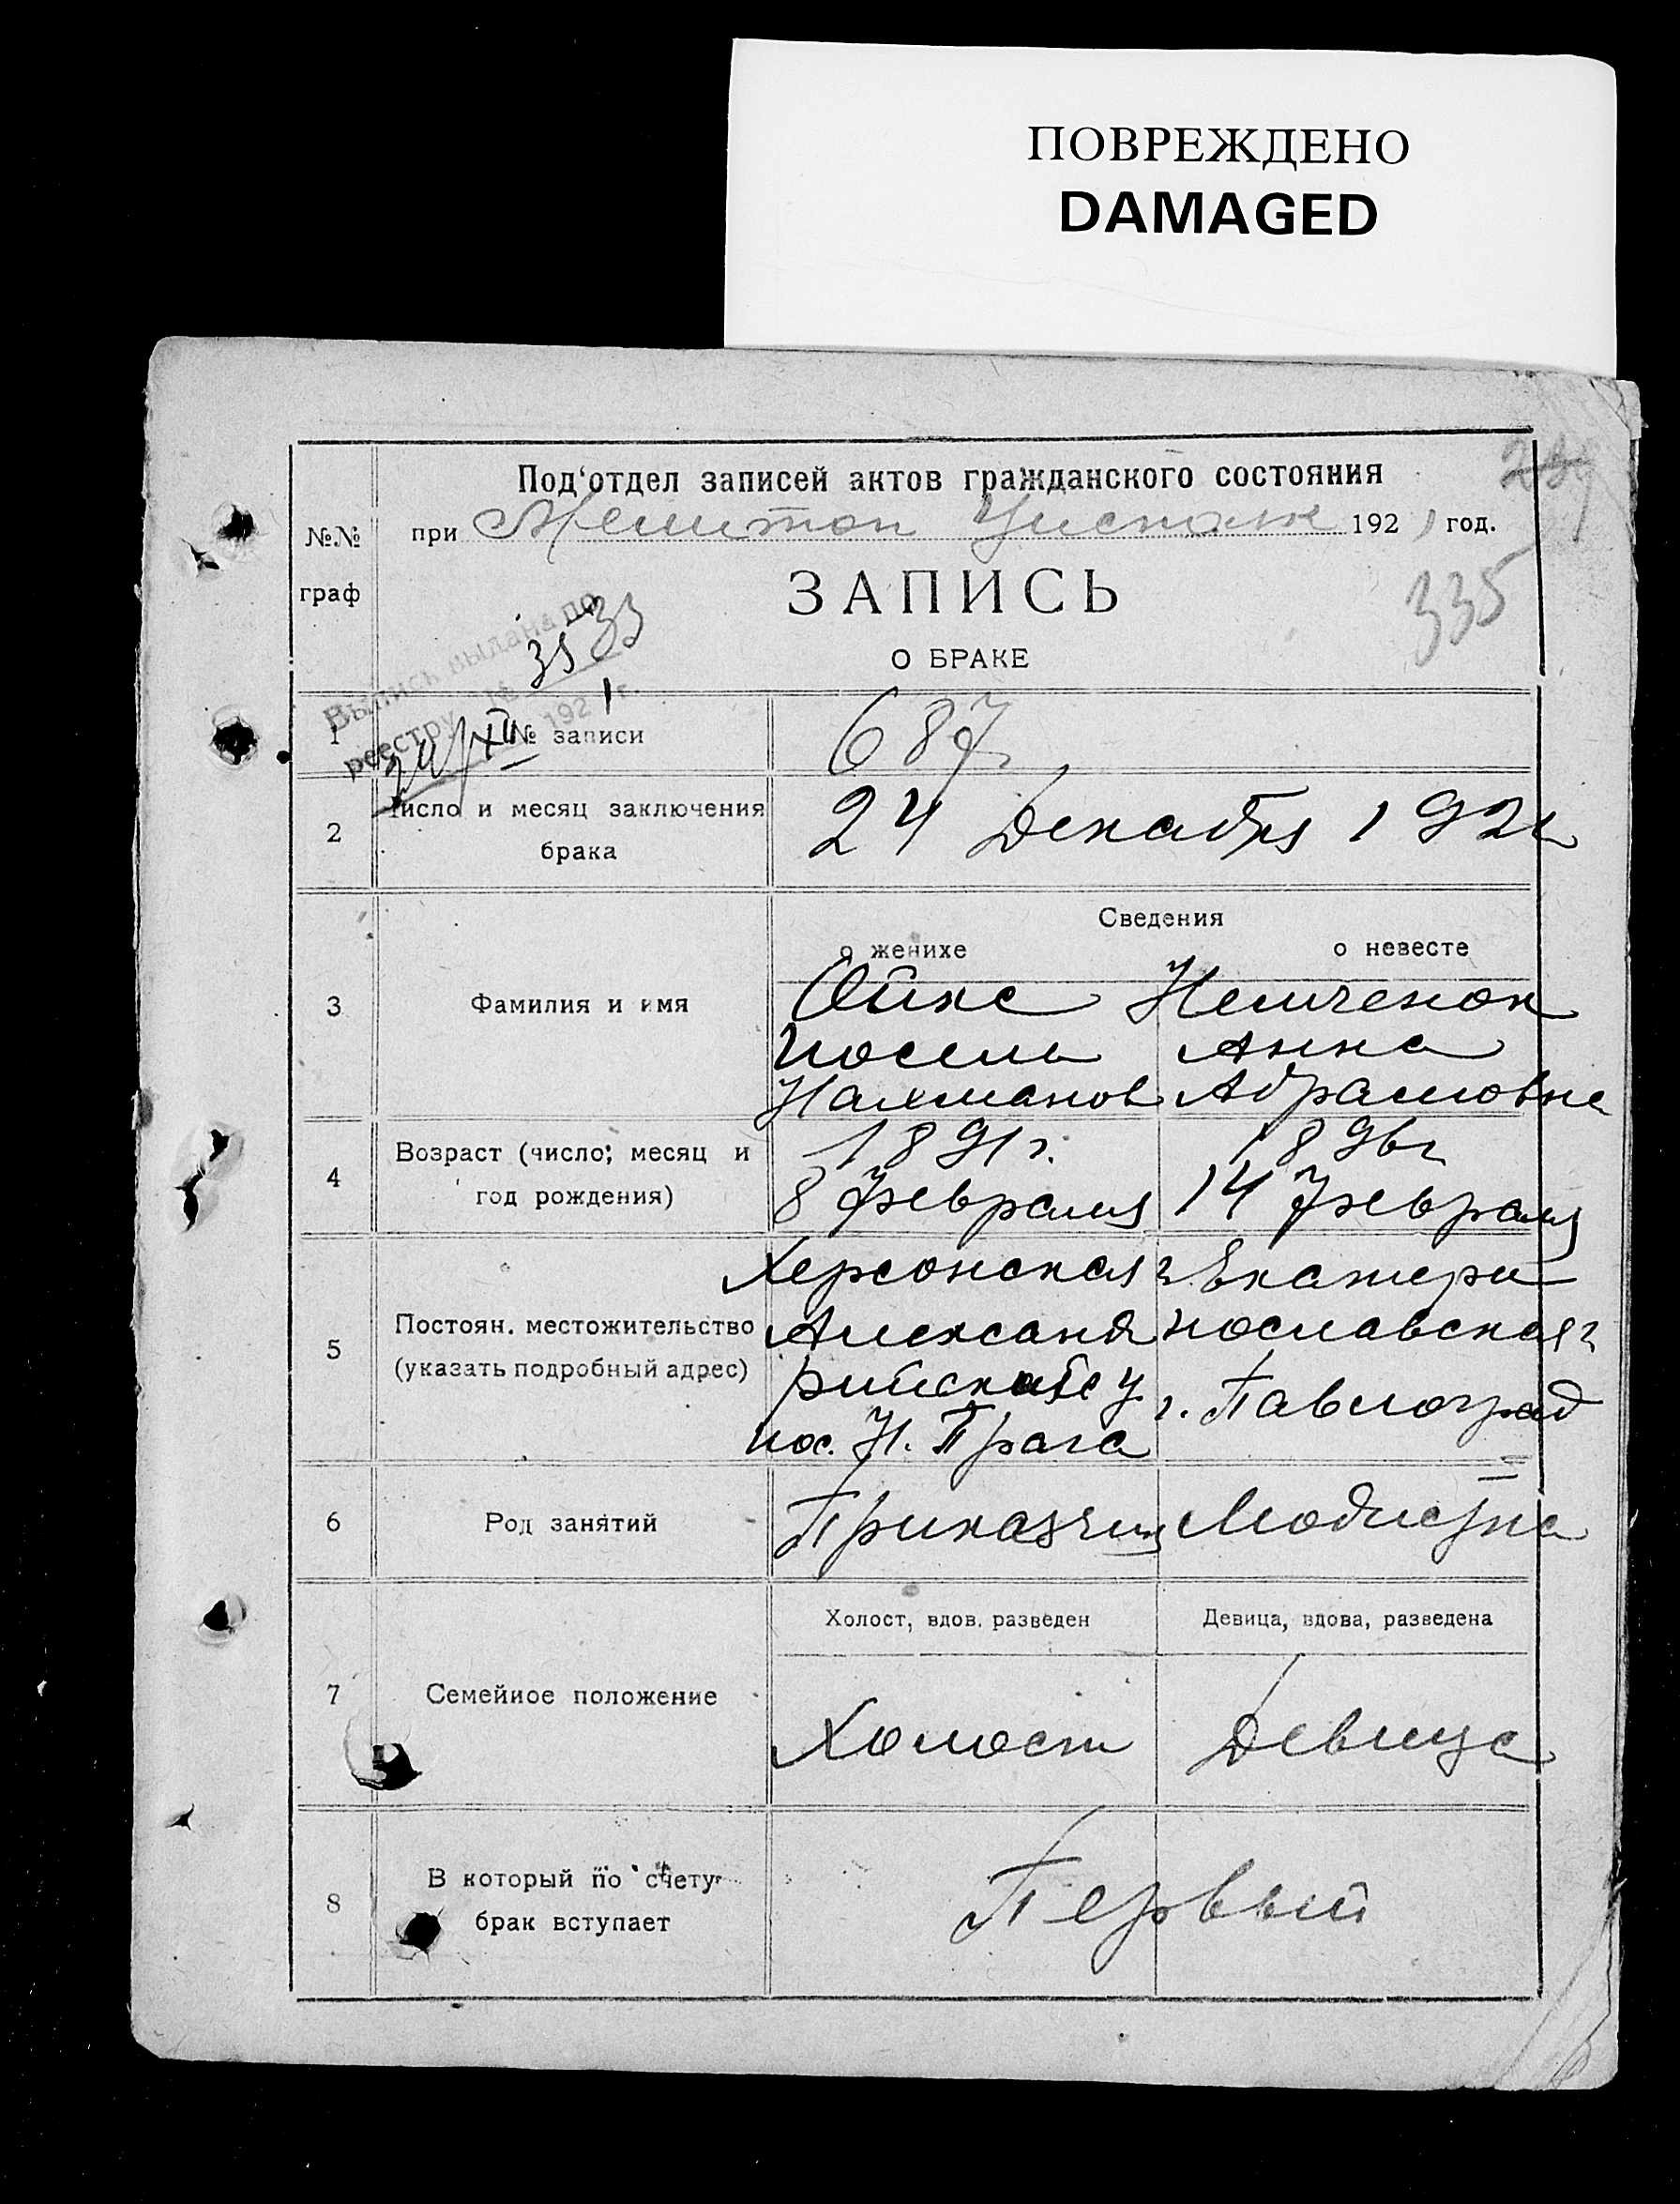 ПОВРЕЖДЕНО
DAMAGED
Под'отдел записей актов гражданского состояния
при 1921 год.
№№
граф
ЗАПИСЬ
О БРАКЕ
335
Выпись выдана по
реестру № 3533
24/XII 1921 г.
1 № записи 687
2 Число и месяц заключения
брака
24 Декабря 1921
Сведения
о женихе о невесте
3 Фамилия и имя
Ойкс Немченок
Иосель Анна
Нахманов Абрамовна
4 Возраст (число, месяц и
год рождения)
1891 г. 1896 г
8 февраля 14 февраля
5 Постоян. местожительство
(указать подробный адрес)
Херсонская г Екатери
Александ нославская г
рийского у г. Павлоград
пос. Н. Прага
6 Род занятий
Приказчик Модистка
7 Семейное положение
Холост, вдов. разведен Девица, вдова, разведена
Холост Девица
8 В который по счету
брак вступает
Первый